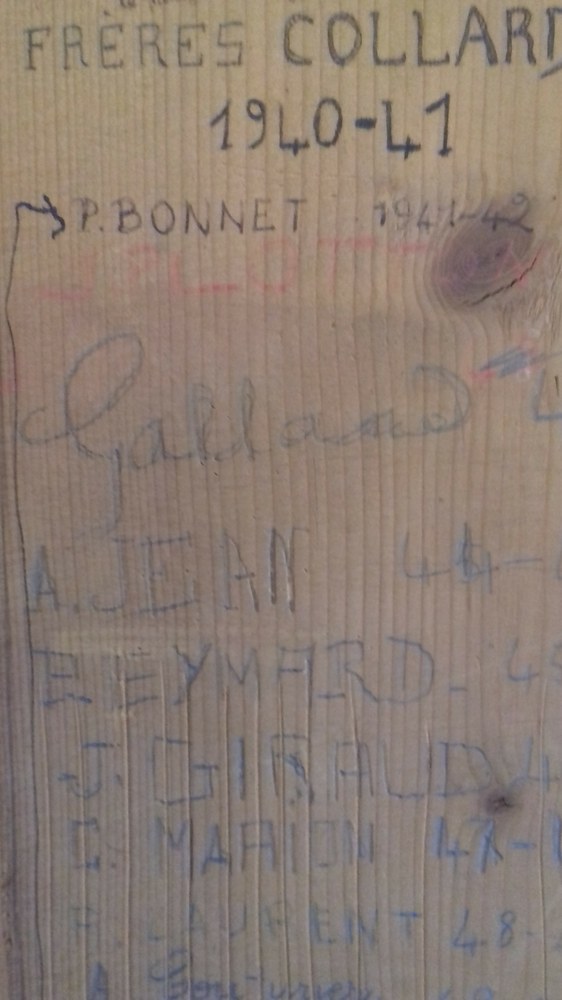 FRÈRES COLLARD
1940-41
P. BONNET 1941-42
Galland
A. JEAN 44-
EYMARD - 45
J. GIRAUD 4
MARION 47-
LAURENT 48-